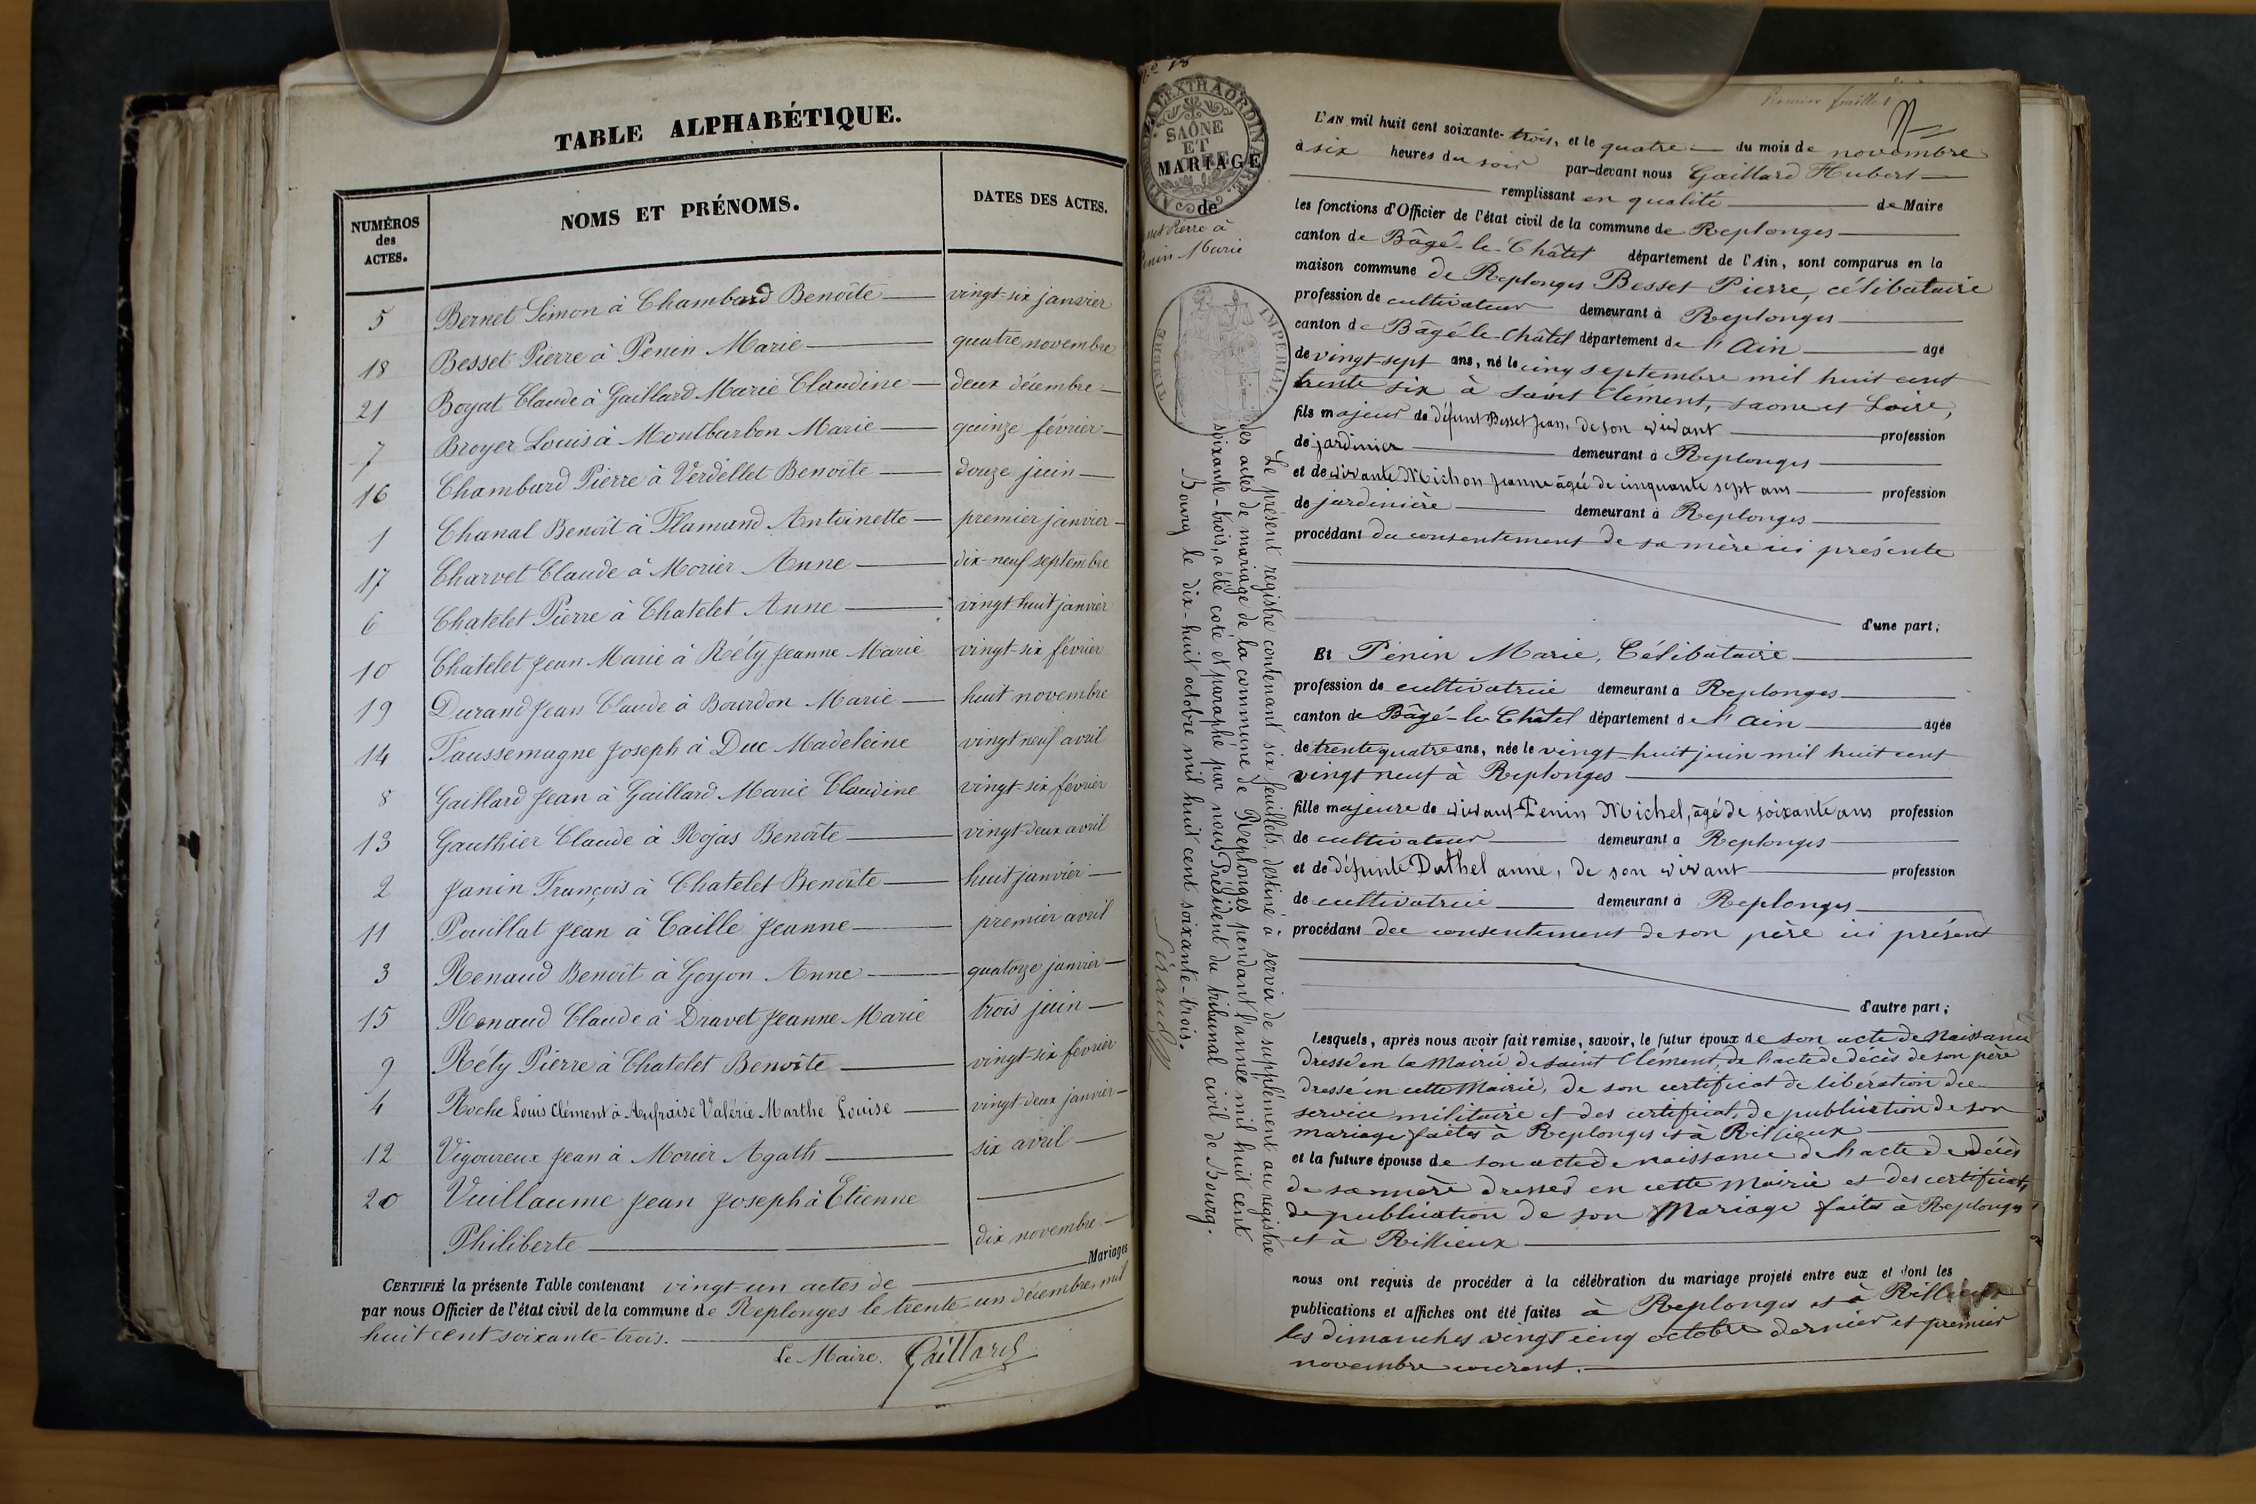 TABLE ALPHABÉTIQUE.
NUMÉROS des ACTES.
NOMS ET PRÉNOMS.
DATES DES ACTES.
5 Bernet Simon à Chambard Benoîte vingt-six janvier
18 Besset Pierre à Penin Marie quatre novembre
21 Boyat Claude à Gaillard Marie Claudine deux décembre
7 Broyer Louis à Montbarbon Marie quinze février
16 Chambard Pierre à Verdellet Benoîte douze juin
1 Chanal Benoit à Flamand Antoinette premier janvier
17 Charvet Claude à Morier Anne dix-neuf septembre
6 Chatelet Pierre à Chatelet Anne vingt-huit janvier
10 Chatelet Jean Marie à Réty Jeanne Marie vingt-six février
19 Durand Jean Claude à Bourdon Marie huit novembre
14 Faussemagne Joseph à Duc Madeleine vingt neuf avril
8 Gaillard Jean à Gaillard Marie Claudine vingt-six février
13 Gauthier Claude à Rojas Benoîte vingt-deux avril
2 Janin François à Chatelet Benoîte huit janvier
11 Pouillat Jean à Caille Jeanne premier avril
3 Renaud Benoît à Goyon Anne quatorze janvier
15 Renaud Claude à Dravet Jeanne-Marie trois juin
9 Réty Pierre à Chatelet Benoîte vingt-six février
4 Roche Louis Clément à Aufraise Valérie Marthe Louise vingt-deux janvier
12 Vigoureux Jean à Morier Agath six avril
20 Vuillaume Jean Joseph à Etienne
Philiberte dix novembre
Mariages
CERTIFIÉ la présente Table contenant vingt-un actes de
par nous Officier de l'état civil de la commune de Replonges le trente-un décembre, mil
huit cent soixante-trois.
Le Maire. Gaillard
18
EXTRAORDINAIRE
SAÔNE
ET
MARIAGE
de
Pierre à
Marie
TIMBRE IMPÉRIAL
Le présent registre contenant six feuillets, destiné à servir de supplément au registre
des actes de mariage de la commune de Replonges pendant l'année mil huit cent
soixante-trois, a été coté et paraphé par nous Président du tribunal civil de Bourg.
Bourg le dix-huit octobre mil huit cent soixante-trois.
Premier feuillet
L'AN mil huit cent soixante-trois, et le quatre du mois de novembre
à six heures du soir par-devant nous Gaillard Hubert
remplissant en qualité de Maire
les fonctions d'Officier de l'état civil de la commune de Replonges
canton de Bâgé-le-Châtel département de l'Ain, sont comparus en la
maison commune de Replonges Besset Pierre, célibataire
profession de cultivateur demeurant à Replonges
canton de Bâgé-le-Châtel département de l'Ain âgé
de vingt-sept ans, né le cinq septembre mil huit cent
trente six à Saint Clément, saone et Loire,
fils majeur de défunt Besset Jean, de son vivant profession
de jardinier demeurant à Replonges
et de vivante Michon Jeanne âgée de cinquante sept ans profession
de jardinière demeurant à Replonges
procédant du consentement de sa mère ici présente
d'une part;
Et Penin Marie, Célibataire
profession de cultivatrice demeurant à Replonges
canton de Bâgé-le-Châtel département de l'Ain agée
de trente quatre ans, née le vingt-huit juin mil huit cent
vingt neuf à Replonges
fille majeure de vivant Penin Michel, âgé de soixante ans profession
de cultivateur demeurant à Replonges
et de défunte Duthel anne, de son vivant profession
de cultivatrice demeurant à Replonges
procédant du consentement de son père ici présent
d'autre part;
Lesquels, après nous avoir fait remise, savoir, le futur époux de son acte de Naissance
dressé en la Mairie de saint Clément, de l'acte de décès de son père
dressé en cette Mairie, de son certificat de libération du
service militaire et des certificats de publication de son
mariage faites à Replonges et à Rillieux
et la future épouse de son acte de naissance de l'acte de décès
de sa mère dressés en cette Mairie et des certificats
de publication de son Mariage faites à Replonges
et à Rillieux
nous ont requis de procéder à la célébration du mariage projeté entre eux et dont les
publications et affiches ont été faites à Replonges et à Rillieux
les dimanches vingt cinq octobre dernier et premier
novembre courant.